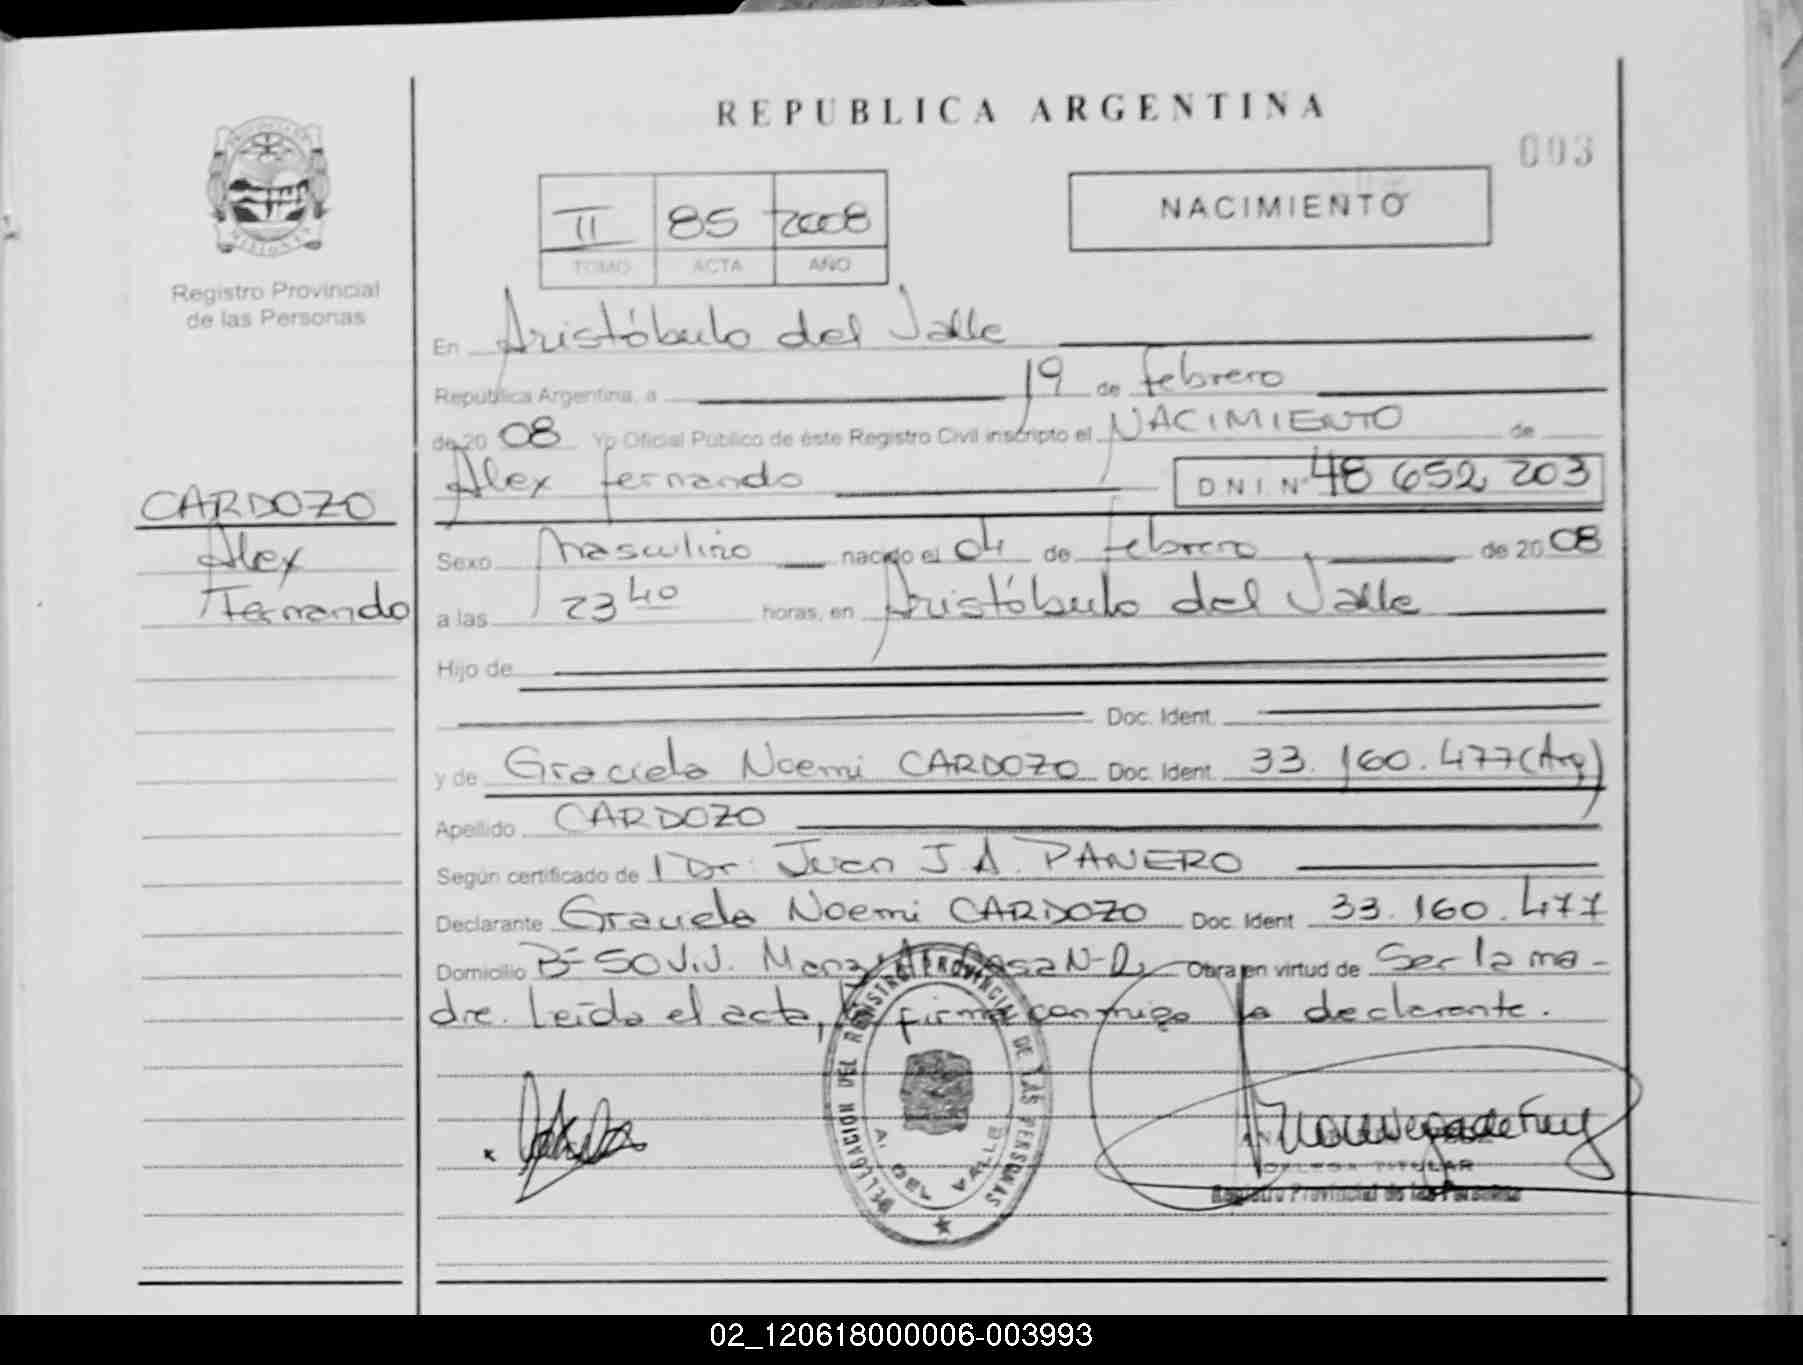 REPUBLICA ARGENTINA
003
II 85 2008
TOMO ACTA AÑO
NACIMIENTO
MISIONES
Registro Provincial
de las Personas
En Aristóbulo del Valle
República Argentina, a 19 de febrero
de 20 08 Yo Oficial Público de éste Registro Civil inscripto el NACIMIENTO de
Alex fernando D N I. Nº 48 652 203
CARDOZO
Alex
Fernando
Sexo masculino nacido el 04 de febrero de 20 08
a las 23 40 horas, en Aristóbulo del Valle
Hijo de
Doc. Ident.
y de Graciela Noemi CARDOZO Doc. Ident. 33.160.477 (Arg)
Apellido CARDOZO
Según certificado de l Dr. Juan J. A. PANERO
Declarante Graciela Noemi CARDOZO Doc. Ident. 33.160.477
Domicilio Bº 50 V.V. Casa Obra en virtud de Ser la ma-
dre. Leída el acta, la firma conmigo la declarante.
DELEGACION DEL REGISTRO PROVINCIAL DE LAS PERSONAS
VALLE
TITULAR
Registro Provincial de las Personas
02_120618000006-003993